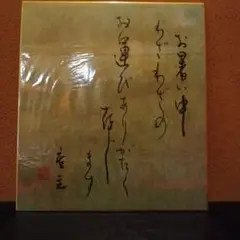 お暑い中
わざわざの
お運びありがたく
存じ
ます